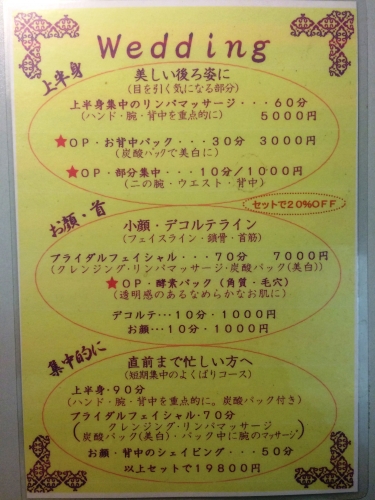 Wedding
上半身
美しい後ろ姿に
(目を引く気になる部分)
上半身集中のリンパマッサージ・・・60分
(ハンド・腕・背中を重点的に) 5000円
★OP・お背中パック・・・30分 3000円
(炭酸パックで美白に)
★OP・部分集中・・・10分/1000円
(二の腕・ウエスト・背中)
セットで20%OFF
お顔・首
小顔・デコルテライン
(フェイスライン・鎖骨・首筋)
ブライダルフェイシャル・・・70分 7000円
(クレンジング・リンパマッサージ・炭酸パック(美白))
★OP・酵素パック(角質・毛穴)
(透明感のあるなめらかなお肌に)
デコルテ・・・10分・1000円
お顔・・・10分・1000円
集中的に
直前まで忙しい方へ
(短期集中のよくばりコース)
上半身・90分
(ハンド・腕・背中を重点的に。炭酸パック付き)
ブライダルフェイシャル・70分
(クレンジング・リンパマッサージ
炭酸パック(美白)・パック中に腕のマッサージ)
お顔・背中のシェイビング・・・50分
以上セットで19800円